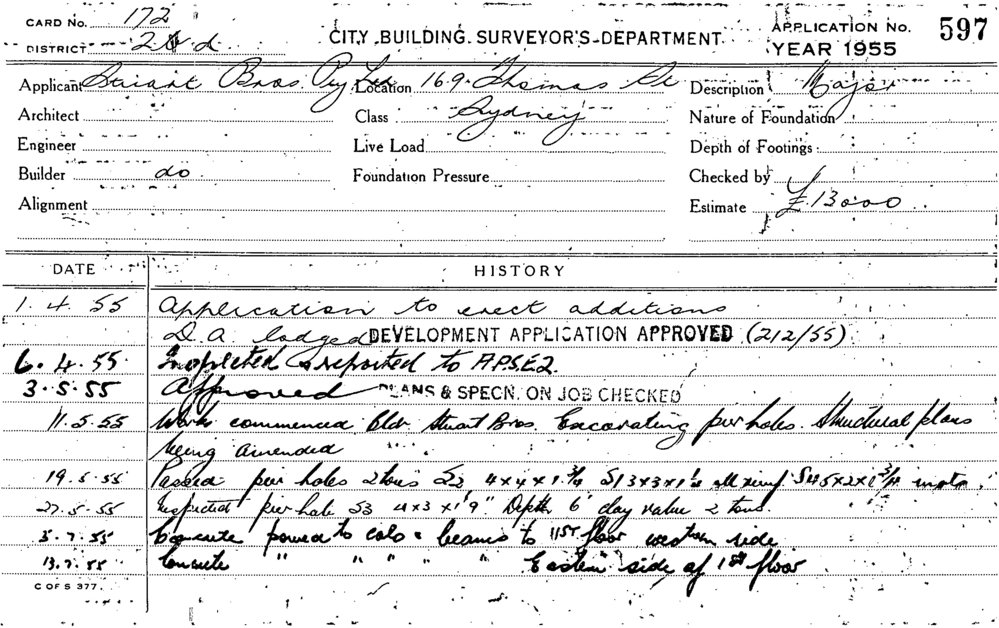 CARD No. 172
DISTRICT 2nd
CITY BUILDING SURVEYOR'S DEPARTMENT
APPLICATION No. 597
YEAR 1955
Applicant Stuart Bros. Pty Ltd Location 169 Thomas St Description Major
Architect Class Sydney Nature of Foundation
Engineer Live Load Depth of Footings
Builder do Foundation Pressure Checked by
Alignment Estimate £13000
DATE HISTORY
1.4.55 Application to erect additions
D.A. lodged DEVELOPMENT APPLICATION APPROVED (212/55)
6.4.55 Inspected & reported to
3.5.55 Approved PLANS & SPECN. ON JOB CHECKED
11.5.55 Work commenced Bldr. Stuart Bros. Excavating pier holes. Structural plans
being amended
19.5.55 Passed pier holes 2 tons
27.5.55 Inspected pier hole S3 4x3x1'9" Depth 6' clay value 2 tons.
5.7.55 Concrete poured to cols & beams to 1st floor western side
13.7.55 Concrete " " " " Eastern side of 1st floor
C OF S 377.